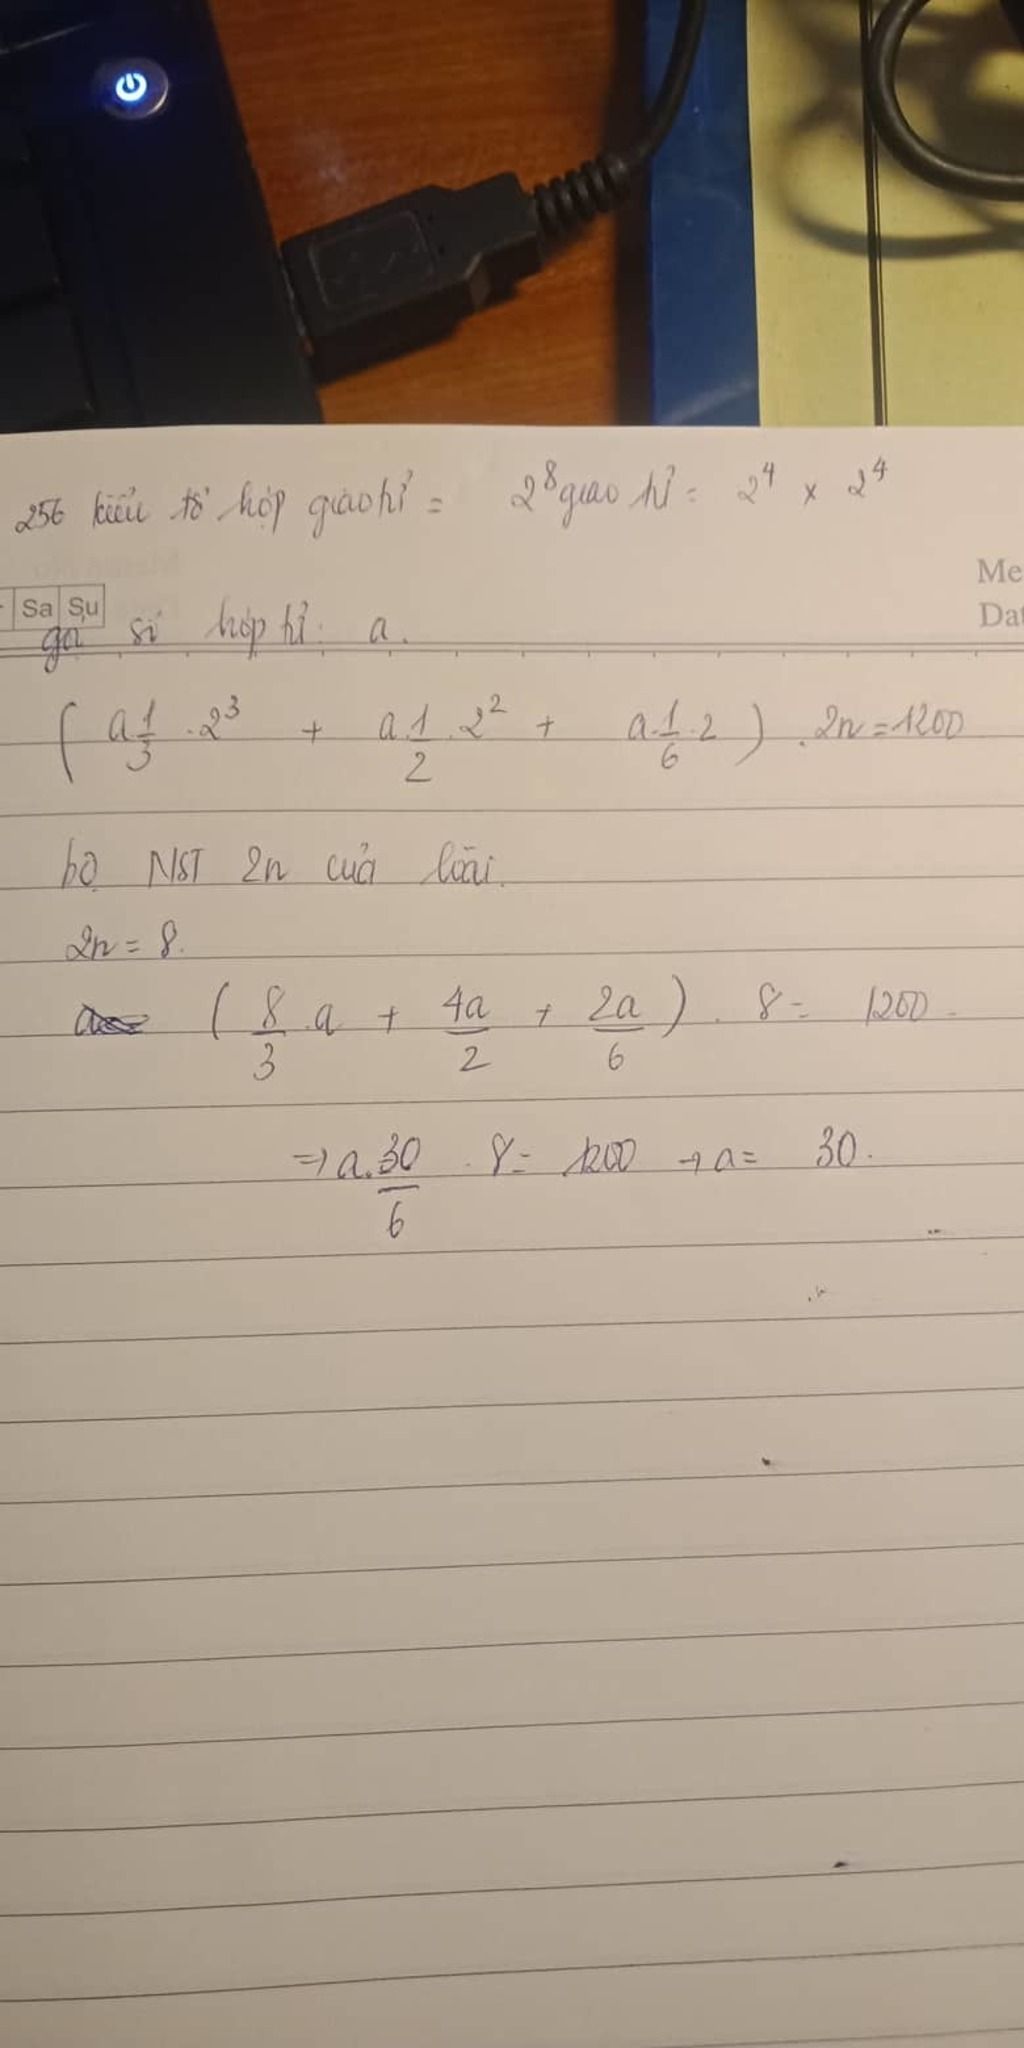 256 kiểu tổ hợp giao tử = 2⁸ giao tử = 2⁴ x 2⁴
Me
Sa Su
Dat
gọi số hợp tử: a.
( a 1/3 . 2³ + a. 1/2 . 2² + a. 1/6 . 2 ) . 2n = 1200
bộ NST 2n của loài.
2n = 8.
( 8/3 . a + 4a/2 + 2a/6 ) . 8 = 1200.
=> a. 30/6 . 8 = 1200 → a = 30.